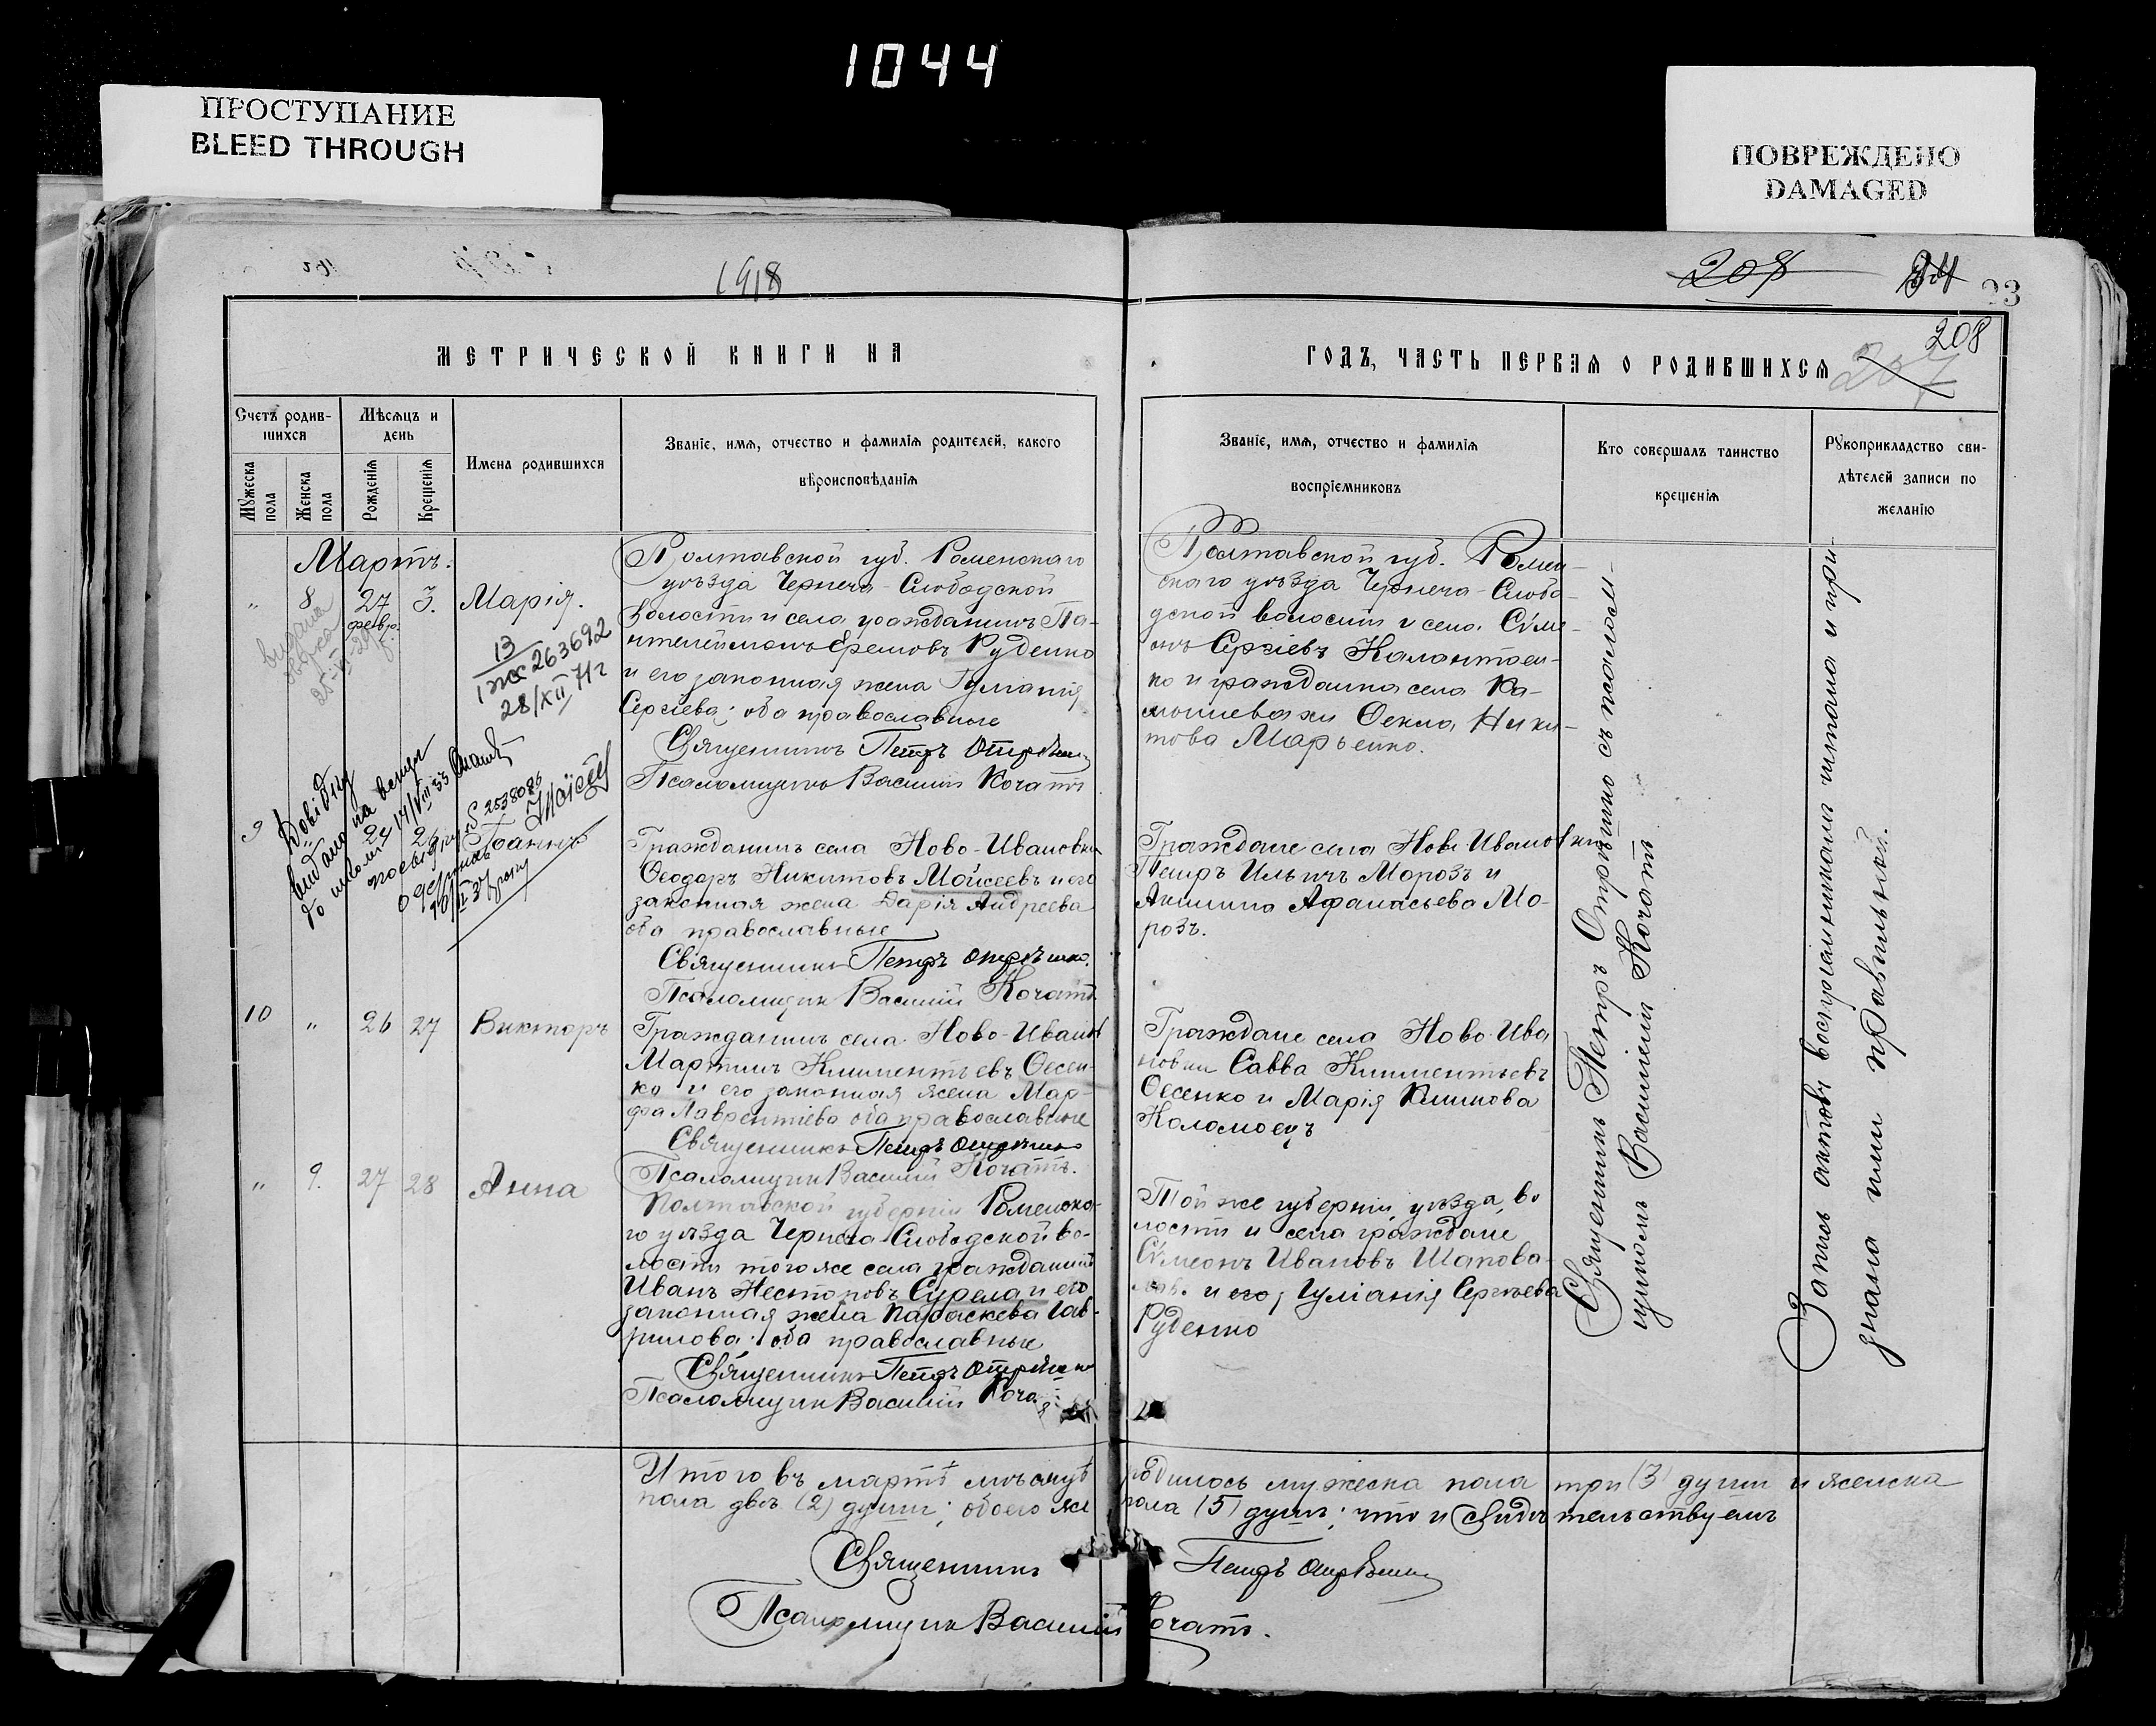 1044
ПРОСТУПАНИЕ
BLEED THROUGH
ПОВРЕЖДЕНО
DAMAGED
1918
208
34
93
208
207
МЕТРИЧЕСКОЙ КНИГИ НА
ГОДЪ, ЧАСТЬ ПЕРВАЯ О РОДИВШИХСЯ
Счетъ родив-
шихся
Мѣсяцъ и
день
Мужеска
пола
Женска
пола
Рожденія
Крещенія
Имена родившихся
Званіе, имя, отчество и фамилія родителей, какого
вѣроисповѣданія
Званіе, имя, отчество и фамилія
воспріемниковъ
Кто совершалъ таинство
крещенія
Рукоприкладство сви-
дѣтелей записи по
желанію
Мартъ.
" 8 27 3. Марія.
февр.
13
263692
28/XII 71г
Полтавской губ. Роменскаго
уѣзда Чернеча-Слободской
волости и села гражданинъ Па-
нтелеймонъ Ефемовъ Руденко
и его законная жена Іуліанія
Сергіева; оба православные
Священникъ Петръ Отрѣшко
Псаломщикъ Василій Кочатъ
Полтавской губ. Ромен-
скаго уѣзда Чернеча-Слобо-
дской волости и села. Сѵме-
онъ Сергіевъ Калантаен-
ко и гражданка села
Ѳекла Ники-
това Марьенко.
Довідку
видано на
до школи 14/VIII 33
S 2538086
16/II 37 року
9 " 24 26 Іоаннъ
Гражданинъ села Ново-Ивановки
Ѳеодоръ Никитовъ Мойсеевъ и его
законная жена Дарія Андреева
оба православные
Священникъ Петръ Отрѣшко.
Псаломщикъ Василій Кочатъ.
Граждане села Ново-Ивановки
Петръ Ильичъ Морозъ и
Акилина Афанасьева Мо-
розъ.
10 " 26 27 Викторъ
Гражданинъ села Ново-Иванов
Мартинъ Климентьевъ Ѳесен-
ко и его законная жена Мар-
фа Лаврентіева оба православные
Священникъ Петръ Отрѣшко
Псаломщикъ Василій Кочатъ.
Граждане села Ново-Ива
новки Савва Климентьевъ
Ѳесенко и Марія Климова
Коломоецъ
" 9. 27 28 Анна
Полтавской губерніи Роменска-
го уѣзда Чернеча Слободской во-
лости того же села гражданинъ
Иванъ Несторовъ Сурела и его
законная жена Параскева Гав-
рилова; оба православные
Священникъ Петръ Отрѣшко
Псаломщикъ Василій Коча
Той же губерніи, уѣзда, во
лости и села граждане
Сѵмеонъ Ивановъ Шапова-
и его, Іуліанія Сергѣева
Руденко
Священникъ Петръ Отрѣшко съ псалом-
щикомъ Василіемъ Кочатъ
Запись актовъ воспріемниками читана и при-
знана ими правильной.
Итого въ мартѣ мѣсяцѣ родилось мужеска пола три (3) души и женска
пола двѣ (2) души; обоего же пола (5) душъ; что и свидѣтельствуемъ
Священникъ Петръ Отрѣшко
Псаломщикъ Василій Кочатъ.